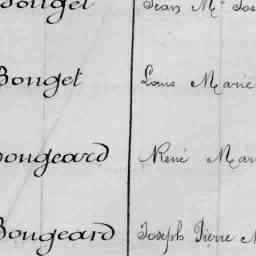 Bouget Jean M. Jos
Bouget Louis Marie
Bougeard René Mar
Bougeard Joseph Pierre M